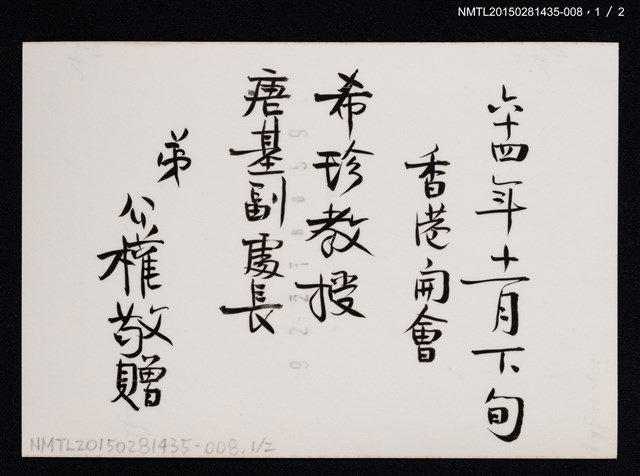 NMTL20150281435-008，1 / 2
六十四年十一月下旬
香港開會
希珍教授
唐基副處長
弟
公權敬贈
NMTL20150281435-008.1/2